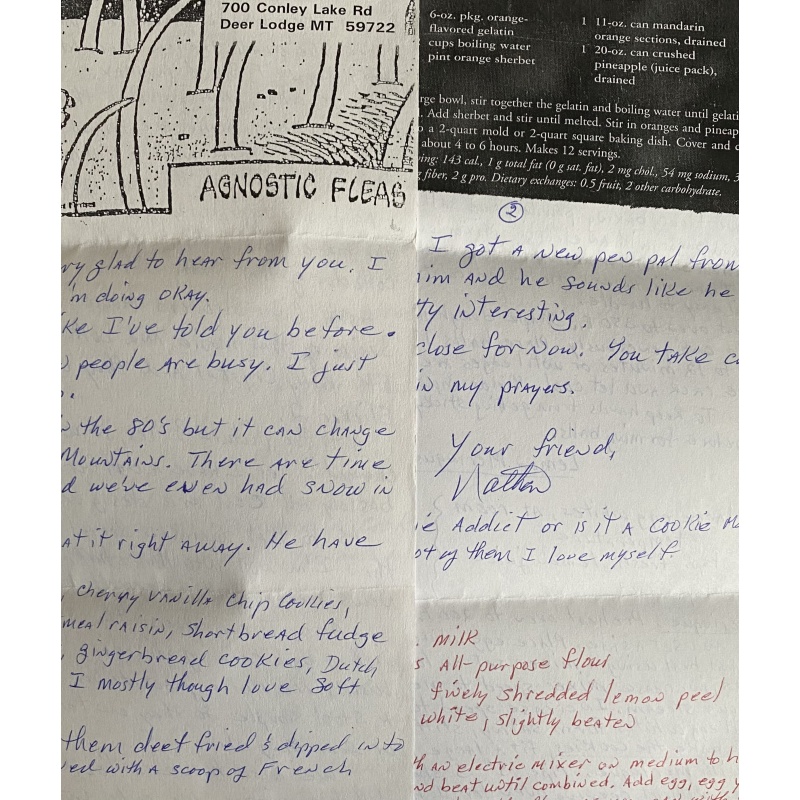 700 Conley Lake Rd
Deer Lodge MT 59722
AGNOSTIC FLEAS
ry glad to hear from you. I
'm doing okay.
ke I've told you before.
people are busy. I just
the 80's but it can change
Mountains. There are time
d we've even had snow in
at it right away. He have
, cherry vanilla chip cookies,
meal raisin, shortbread fudge
, gingerbread cookies, Dutch
I mostly though love soft
them deet fried & dipped in to
ed with a scoop of French
6-oz. pkg. orange-
flavored gelatin
cups boiling water
pint orange sherbet
1 11-oz. can mandarin
orange sections, drained
1 20-oz. can crushed
pineapple (juice pack),
drained
rge bowl, stir together the gelatin and boiling water until gelati
. Add sherbet and stir until melted. Stir in oranges and pineap
o a 2-quart mold or 2-quart square baking dish. Cover and c
about 4 to 6 hours. Makes 12 servings.
ing: 143 cal., 1 g total fat (0 g sat. fat), 2 mg chol., 54 mg sodium, 3
fiber, 2 g pro. Dietary exchanges: 0.5 fruit, 2 other carbohydrate.
2
I got a new pen pal from
him and he sounds like he
ty interesting.
close for now. You take c
in my prayers.
Your friend,
Nathan
ie Addict or is it a cookie M
ot of them I love myself.
. milk
s all-purpose flour
finely shredded lemon peel
white, slightly beaten
h an electric mixer on medium to h
nd beat until combined. Add egg, egg y